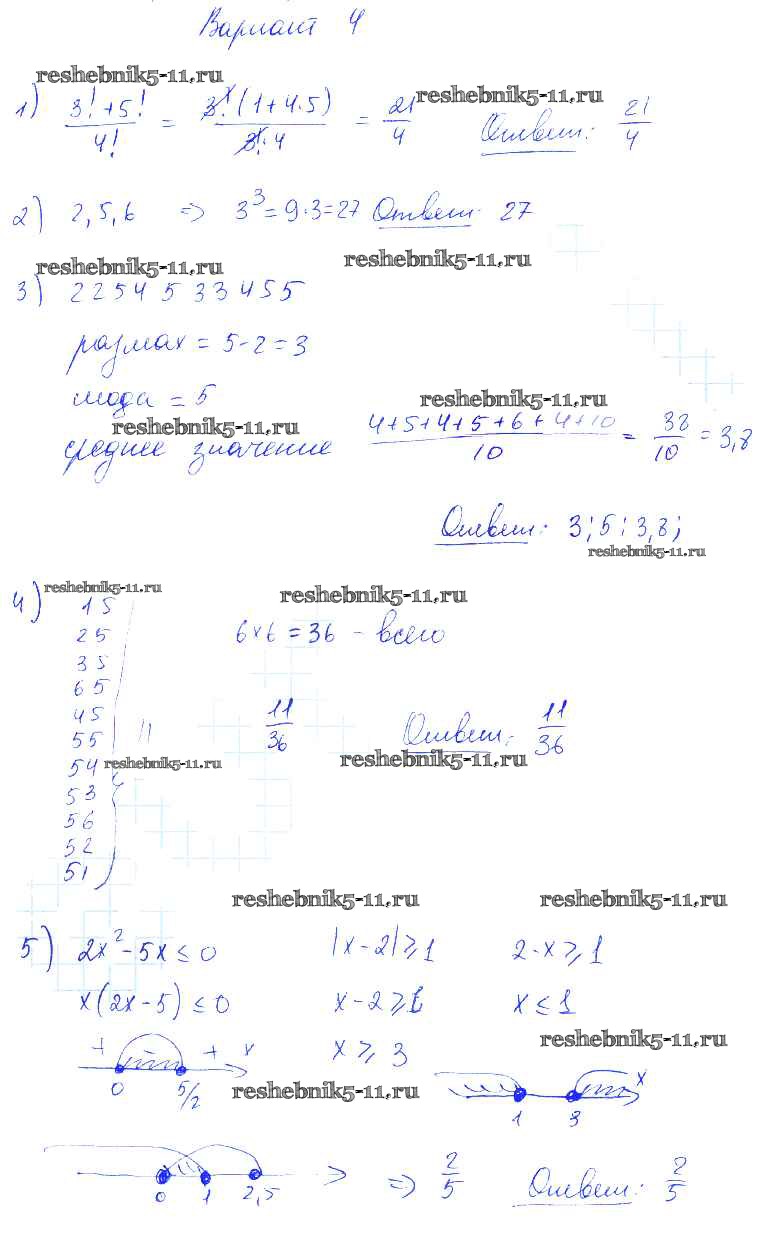 Вариант 4
reshebnik5-11.ru
reshebnik5-11.ru
1) (3!+5!)/4! = 3!(1+4·5)/(3!·4) = 21/4 Ответ: 21/4
2) 2,5,6 => 3³=9·3=27 Ответ: 27
reshebnik5-11.ru
reshebnik5-11.ru
3) 2 2 5 4 5 3 3 4 5 5
размах = 5-2=3
мода = 5
reshebnik5-11.ru
reshebnik5-11.ru
среднее значение (4+5+4+5+6+4+10)/10 = 38/10 = 3,8
Ответ: 3; 5; 3,8;
reshebnik5-11.ru
reshebnik5-11.ru
reshebnik5-11.ru
4) 15
25
6×6=36 - всего
35
65
45
55
11
11/36
Ответ: 11/36
54
reshebnik5-11.ru
reshebnik5-11.ru
53
56
52
51
reshebnik5-11.ru
reshebnik5-11.ru
5) 2x²-5x≤0 |x-2|≥1 2-x≥1
x(2x-5)≤0 x-2≥1 x≤1
reshebnik5-11.ru
+ + x
x≥3
0 5/2
reshebnik5-11.ru
x
1 3
0 1 2,5
=> 2/5 Ответ: 2/5